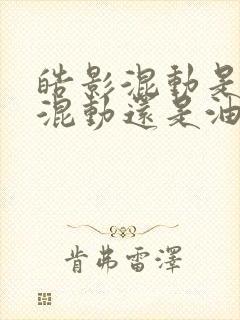 皓影混動是
混動還是油
肯弗雷澤